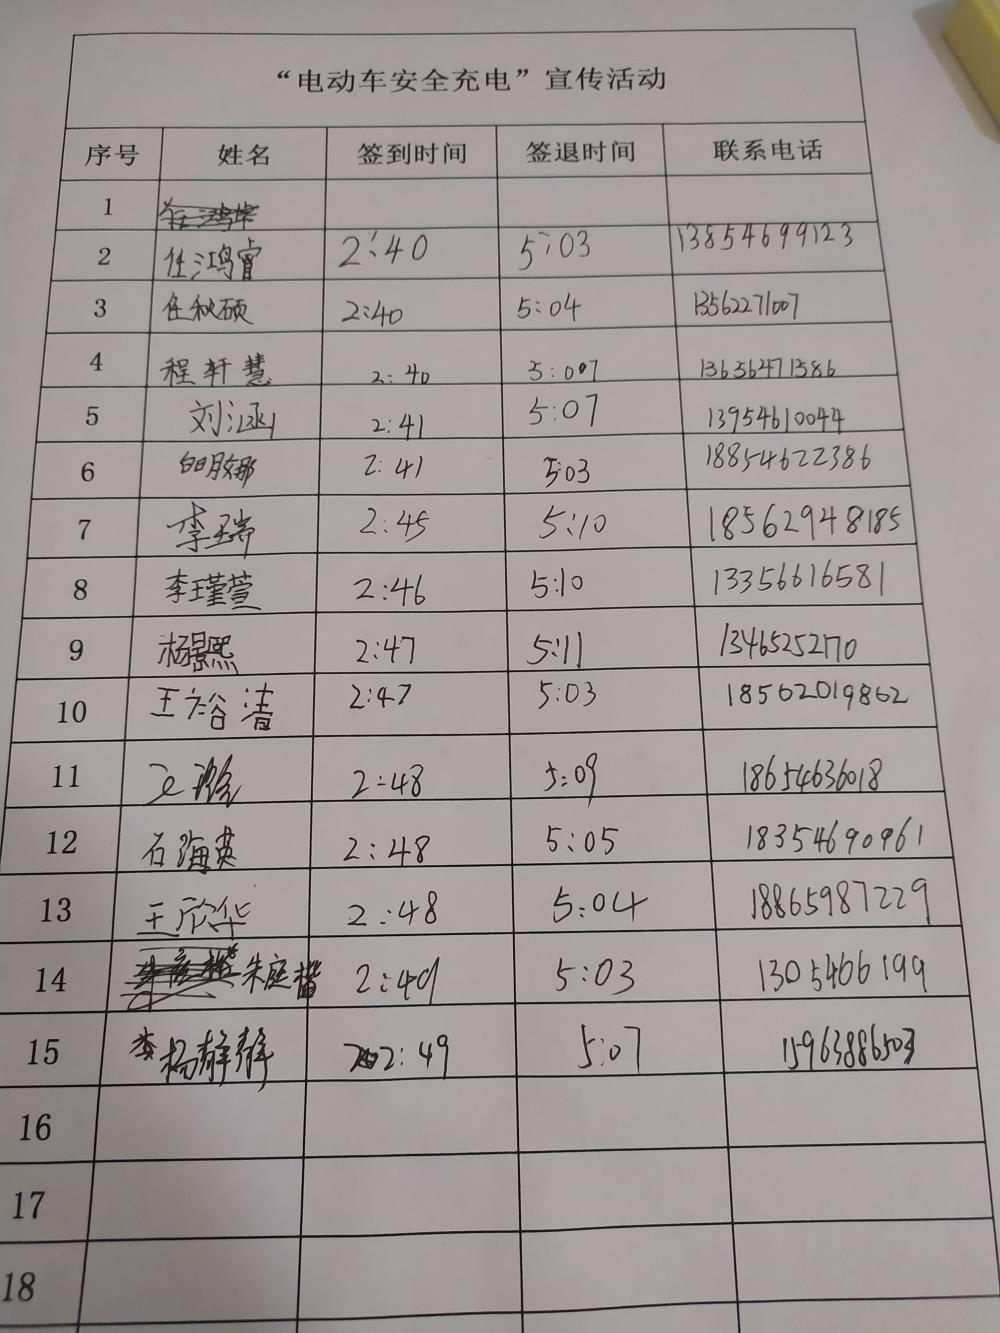 “电动车安全充电”宣传活动
序号 姓名 签到时间 签退时间 联系电话
1
2 任鸿睿 2:40 5:03 13854699123
3 任秋硕 2:40 5:04 13562271007
4 程轩慧 2:40 5:007 13656471386
5 刘涵 2:41 5:07 13954610044
6 2:41 5:03 18854622386
7 李瑞 2:45 5:10 18562948185
8 李瑾萱 2:46 5:10 13356616581
9 杨景熙 2:47 5:11 13465252170
10 王裕清 2:47 5:03 18562019862
11 2:48 5:09 18654636018
12 石海英 2:48 5:05 18354690961
13 王欣华 2:48 5:04 18865987229
14 朱庭楷 2:49 5:03 13054606199
15 杨静静 2:49 5:07 15963886503
16
17
18